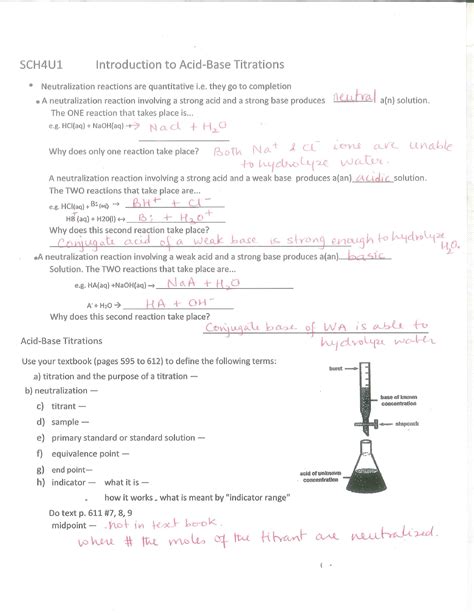 SCH4U1 Introduction to Acid-Base Titrations
* Neutralization reactions are quantitative i.e. they go to completion
• A neutralization reaction involving a strong acid and a strong base produces neutral a(n) solution.
The ONE reaction that takes place is...
e.g. HCl(aq) + NaOH(aq) → NaCl + H2O
Why does only one reaction take place? Both Na+ & Cl- ions are unable
to hydrolyze water.
A neutralization reaction involving a strong acid and a weak base produces a(an) acidic solution.
The TWO reactions that take place are...
e.g. HCl(aq) + B:(aq) → BH+ + Cl-
HB+(aq) + H20(l) ↔ B: + H3O+
Why does this second reaction take place?
Conjugate acid of a weak base is strong enough to hydrolyze
H2O.
• A neutralization reaction involving a weak acid and a strong base produces a(an) basic
Solution. The TWO reactions that take place are...
e.g. HA(aq) +NaOH(aq) → NaA + H2O
A- + H2O → HA + OH-
Why does this second reaction take place?
Conjugate base of WA is able to
hydrolyze water
Acid-Base Titrations
Use your textbook (pages 595 to 612) to define the following terms:
a) titration and the purpose of a titration —
b) neutralization —
c) titrant —
d) sample —
e) primary standard or standard solution —
f) equivalence point —
g) end point—
h) indicator — what it is —
how it works . what is meant by "indicator range"
buret
base of known
concentration
stopcock
acid of unknown
concentration
Do text p. 611 #7, 8, 9
midpoint — not in text book.
where # the moles of the titrant are neutralized.